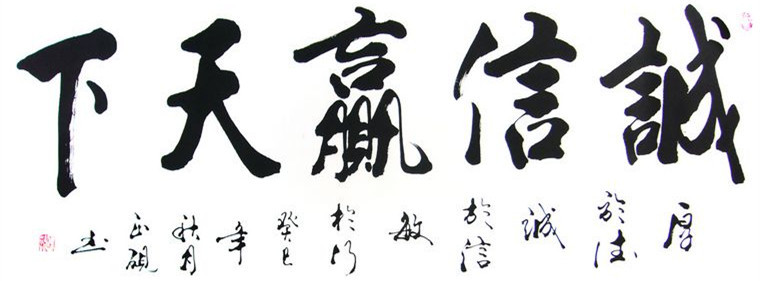 誠信贏天下
厚於德誠於信敏於行癸巳年秋月硯书